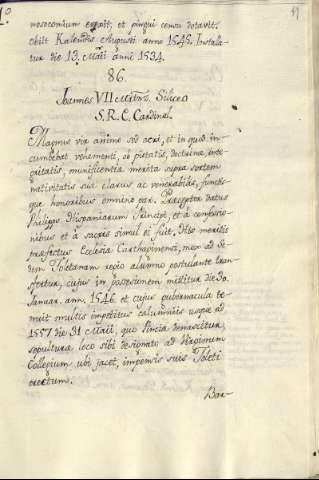 nosocomium erexit, et pingui censu dotavit.
obiit Kalendis Augusti anno 1545. Installa-
tus die 13. Maii anni 1534.
86.
Joannes VII Martinz. Siliceo
S. R. E. Cardinal.
Magnus vir animo sod acri, et in quod in-
cumbebat vehementi, ob pietatis, doctrinæ, inte-
gritatis, munificentia merita supra sortem
nativitatis suæ clarus ac venerabilis, functus-
que honoribus omnino par. Præceptor datus
Philippo Hispaniarum Principi, et à confessio-
nibus et à sacris simul ei fuit. Illis meritis
præfectus Ecclesiæ Carthaginensi, mox ad Se-
dem Toletanam regio alumno postulante tran-
sfertur, cujus in possessionem mittitur die 30.
Januar. ann. 1546 et cujus gubernacula te-
nuit multis impetitus calumniis usque ad
1557 die 31 Maii, quo Pincia denascitur
sepultura loco sibi designato, ad Virginum
Collegium ubi jacet, impensis suis Toleti
erectum.
Bar-